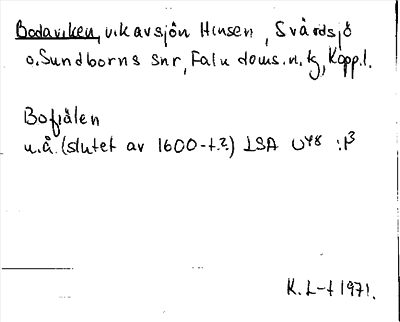 Bodaviken, vik av sjön Hinsen, Svärdsjö
o. Sundborns snr, Falu doms. n. tg, Kopp. l.
Bofiälen
u.å. (slutet av 1600-t.?) LSA U48 :13
K. L-t 1971.